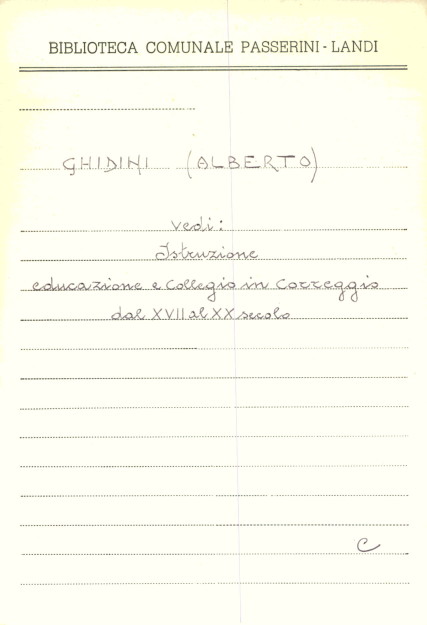 BIBLIOTECA COMUNALE PASSERINI-LANDI
GHIDINI (ALBERTO)
vedi:
Istruzione
educazione e Collegio in Correggio
dal XVII al XX secolo
C